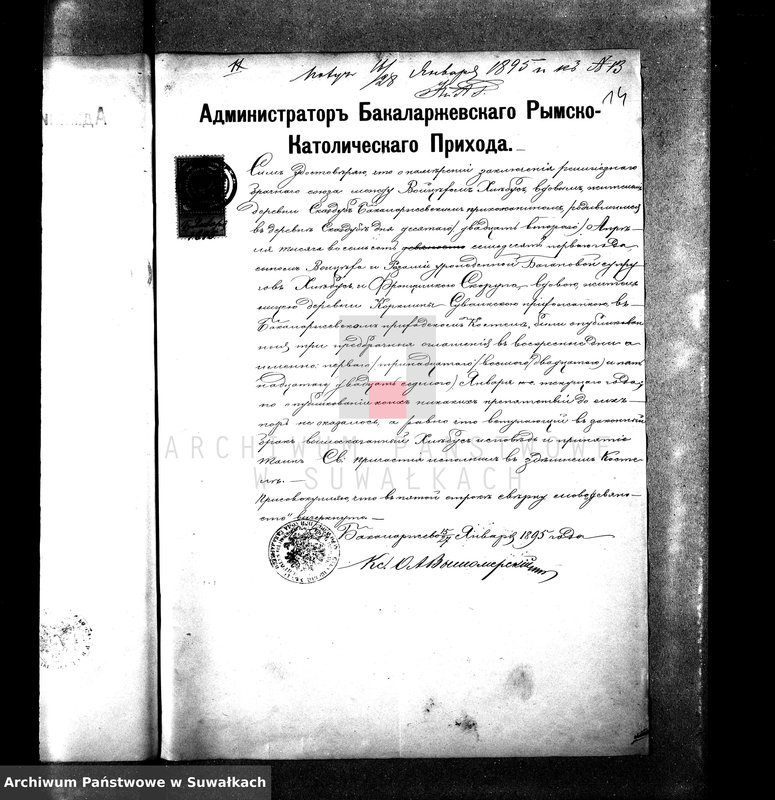 Января 1895 г. къ А 13
14
Администраторъ Бакаларжевскаго Рымско-
Католическаго Прихода.
Симъ удостовѣряю, что о намѣреніи заключенія религіознаго
брачнаго союза между Войцѣхомъ Хлѣбусъ, вдовцомъ, жителемъ
деревни Сказдубъ Бакаларжевскимъ прихожаниномъ, родившимся
въ деревнѣ Сказдубъ дня десятаго/двадцать второго/ Апрѣ-
ля тысяча восемьсотъ девяносто семьдесятъ перваго года
сыномъ Войцѣха и Розаліи урожденной супру-
говъ Хлѣбусъ, и Францишкою Скорупа, вдовою, житель-
ницею деревни Коркліны Сувалкскою прихожанкою, въ
Бакаларжевскомъ приходскомъ Костелѣ, были опубликован-
ныя три предбрачныя оглашенія въ воскресные дни а
именно: перваго/тринадцатаго/, восьмого/двадцатаго/ и пят-
надцатаго/двадцать седьмого/ Января с. текущаго года,
по опубликованіи коихъ никакихъ препятствій до сихъ
поръ не оказалось, а равно что вступающій въ законный
бракъ вышесказанный Хлѣбусъ исповѣдь и принятіе
Таинъ Св. причастія исполнилъ въ здѣшнемъ Косте-
лѣ. —
Присовокупляю, что въ пятой строкѣ сверху слово „девяно-
сто" вычеркнуто. —
Бакаларжево 15/27 Января 1895 года
Кс.
ARCHIWUM PAŃSTWOWE
W SUWAŁKACH
Archiwum Państwowe w Suwałkach